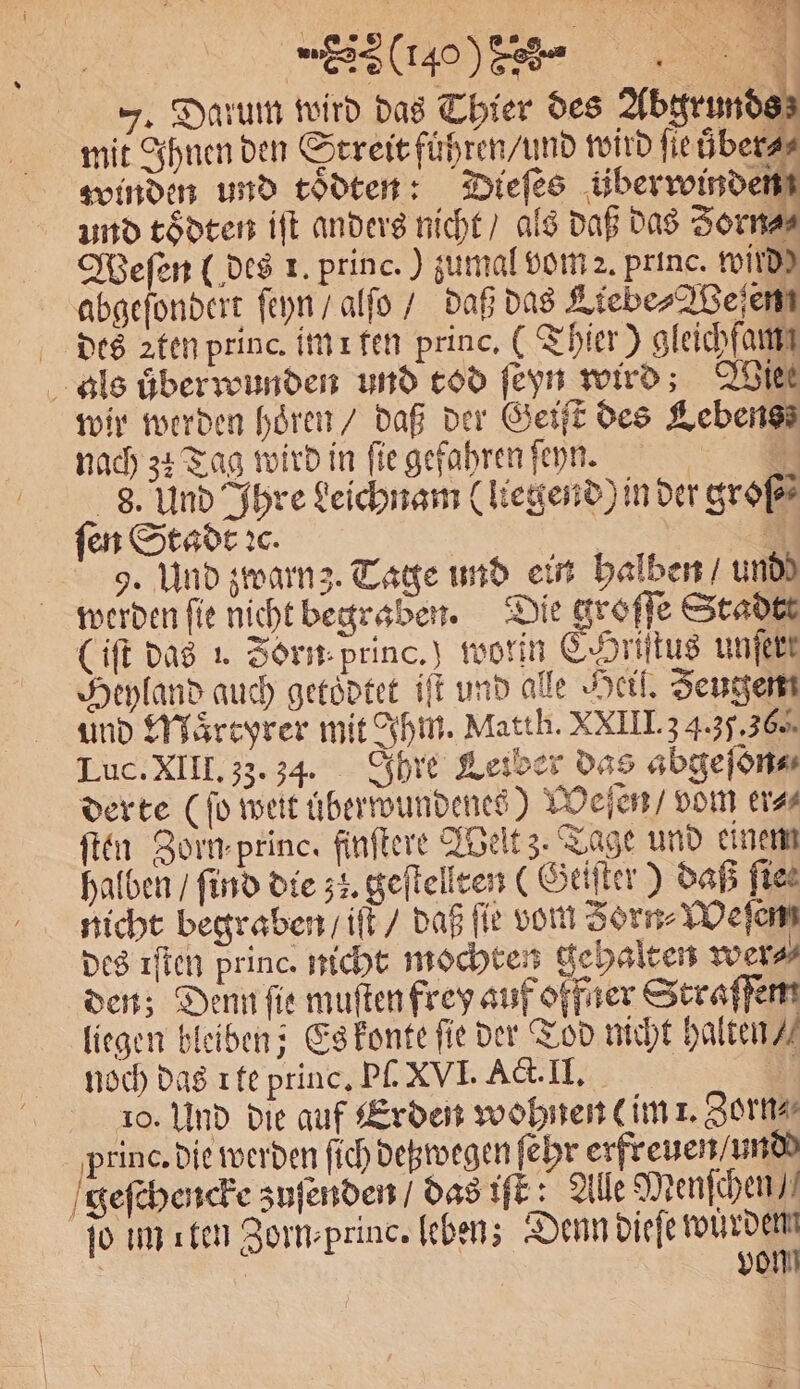 (140)
7. Darum wird das Thier des Abgrunds
mit Ihnen den Streit führen/und wird ſie uͤber⸗
winden und toͤdten: Dieſes überwinden
und toͤdten iſt anders nicht/ als daß das Zorn⸗
Weſen ( des 1. princ. ) zumal vom 2. princ. wird
abgeſondert ſeyn / alſo / daß das Liebe⸗Weſen
des 2ten princ. im 1 ten princ. ( Thier ) gleichſam
als uͤberwunden und tod ſeyn wird; Wie
wir werden hoͤren / daß der Geiſt des Lebens
nach 3½ Tag wird in ſie gefahren ſeyn.
8. Und Ihre Leichnam (liegend) in der groſ⸗
ſen Stadt ꝛc.
9. Und zwarn 3. Tage und ein halben / und
werden ſie nicht begraben. Die groſſe Stadt
( iſt das 1. Zorn⸗princ.) worin CHriſtus unſer
Heyland auch getoͤdtet iſt und alle Heil. Zeugen
und Maͤrtyrer mit Ihm. Matth. XXIII. 34.35.36.
Luc. XIII. 33. 34. Ihre Leiber das abgeſon⸗
derte ( ſo weit uͤberwundenes ) Weſen / vom er⸗
ſten Zorn⸗princ. finſtere Welt 3. Tage und einem
halben / ſind die 3½. geſtellten ( Geiſter ) daß ſie
nicht begraben / iſt / daß ſie vom Zorn⸗Weſen
des 1ſten princ. nicht mochten gehalten wer⸗
den; Denn ſie muſten frey auf offner Straſſen
liegen bleiben; Es konte ſie der Tod nicht halten /
noch das 1 te princ. Pſ. XVI. Act. II.
10. Und die auf Erden wohnen ( im 1. Zorn⸗
princ. die werden ſich deßwegen ſehr erfreuen/und
geſchencke zuſenden / das iſt: Alle Menſchen /
ſo im 1 ten Zorn⸗princ. leben; Denn dieſe wuͤrden
vom